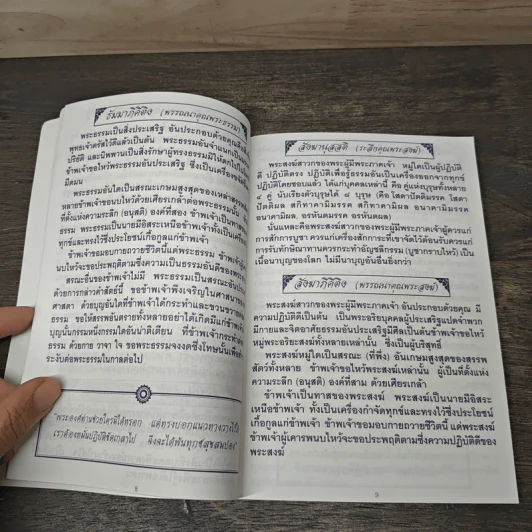 ธัมมาภิคิติง (พรรณนาคุณพระธรรม)
พระธรรมเป็นสิ่งประเสริฐ อันประกอบด้วยคุณ
พุทธเจ้าตรัสไว้ดีแล้วเป็นต้น พระธรรมอันจำแนก
ปริยัติ และนิพพานเป็นสิ่งรักษาผู้ทรงธรรมมิให้ตกไป
ข้าพเจ้าขอไหว้พระธรรมอันประเสริฐ ซึ่งเป็นเครื่องขจัด
มืดมน
พระธรรมอันใดเป็นสรณะเกษมสูงสุดของเหล่าสรรพ
หลายข้าพเจ้าขอนบไหว้ด้วยเศียรเกล้าต่อพระธรรมนั้น
ที่ตั้งแห่งความระลึก (อนุสติ) องค์ที่สอง ข้าพเจ้าเป็นทาส
ธรรม พระธรรมเป็นนายมีอิสระเหนือข้าพเจ้าทั้งเป็นเครื่อง
ทุกข์และทรงไว้ซึ่งประโยชน์เกื้อกูลแก่ข้าพเจ้า
ข้าพเจ้าขอมอบกายถวายชีวิตนี้แด่พระธรรม ข้าพเจ้าผู้
นบไหว้จะขอประพฤติตามซึ่งความเป็นธรรมอันดีของพระธรรม
สรณะอื่นของข้าพเจ้าไม่มี พระธรรมเป็นสรณะอันประเสริฐ
ด้วยการกล่าวคำสัตย์นี้ ขอข้าพเจ้าพึงเจริญในศาสนา
ศาสดา ด้วยบุญอันใดที่ข้าพเจ้าได้กระทำและขวนขวาย
ธรรม ขอให้สรรพอันตรายทั้งหลายอย่าได้เกิดมีแก่ข้าพเจ้า
บุญนั้นกรรมหนึ่งกรรมใดอันน่าติเตียน ที่ข้าพเจ้ากระทำ
ธรรม ด้วยกาย วาจา ใจ ขอพระธรรมจงงดซึ่งโทษนั้นเพื่อ
ระงับต่อพระธรรมในกาลต่อไป
"พระองค์ท่านช่วยใครมิได้หรอก แต่ทรงบอกแนวทางวางไว้
เราต้องหมั่นปฏิบัติขัดเกลาไป จึงจะได้พ้นทุกข์สุขสมปอง"
8
สังฆานุสสติ (ระลึกคุณพระสงฆ์)
พระสงฆ์สาวกของพระผู้มีพระภาคเจ้า หมู่ใดเป็นผู้ปฏิบัติ
ดี ปฏิบัติตรง ปฏิบัติเพื่อรู้ธรรมอันเป็นเครื่องออกจากทุกข์
ปฏิบัติโดยชอบแล้ว ได้แก่บุคคลเหล่านี้ คือ คู่แห่งบุรุษทั้งหลาย
๔ คู่ นับเรียงตัวบุรุษได้ ๘ บุรุษ (คือ โสดาปัตติมรรค โสดา
ปัตติผล สกิทาคามิมรรค สกิทาคามิผล อนาคามิมรรค
อนาคามิผล อรหันตมรรค อรหันตผล)
นั่นแหละคือพระสงฆ์สาวกของผู้มีพระภาคเจ้าผู้ควรแก่
การสักการบูชา ควรแก่เครื่องสักการะที่เขาจัดไว้ต้อนรับควรแก่
การรับทักษิณาทานควรกระทำอัญชลีกรรม (บูชากราบไหว้) เป็น
เนื้อนาบุญของโลก ไม่มีนาบุญอันอื่นยิ่งกว่า
สังฆาภิคิติง (พรรณนาคุณพระสงฆ์)
พระสงฆ์สาวกของพระผู้มีพระภาคเจ้า อันประกอบด้วยคุณ มี
ความปฏิบัติดีเป็นต้น เป็นพระอริยบุคคลผู้ประเสริฐแปดจำพวก
มีกายและจิตอาศัยธรรมอันประเสริฐมีศีลเป็นต้นข้าพเจ้าขอไหว้
หมู่พระอริยะสงฆ์ทั้งหลายเหล่านั้น ซึ่งเป็นผู้บริสุทธิ์
พระสงฆ์หมู่ใดเป็นสรณะ (ที่พึ่ง) อันเกษมสูงสุดของสรรพ
สัตว์ทั้งหลาย ข้าพเจ้าขอไหว้พระสงฆ์เหล่านั้น ผู้เป็นที่ตั้งแห่ง
ความระลึก (อนุสติ) องค์ที่สาม ด้วยเศียรเกล้า
ข้าพเจ้าเป็นทาสของพระสงฆ์ พระสงฆ์เป็นนายมีอิสระ
เหนือข้าพเจ้า ทั้งเป็นเครื่องกำจัดทุกข์และทรงไว้ซึ่งประโยชน์
เกื้อกูลแก่ข้าพเจ้า ข้าพเจ้าขอมอบกายถวายชีวิตนี้ แด่พระสงฆ์
ข้าพเจ้าผู้เคารพนบไหว้จะขอประพฤติตามซึ่งความปฏิบัติดีของ
พระสงฆ์
9